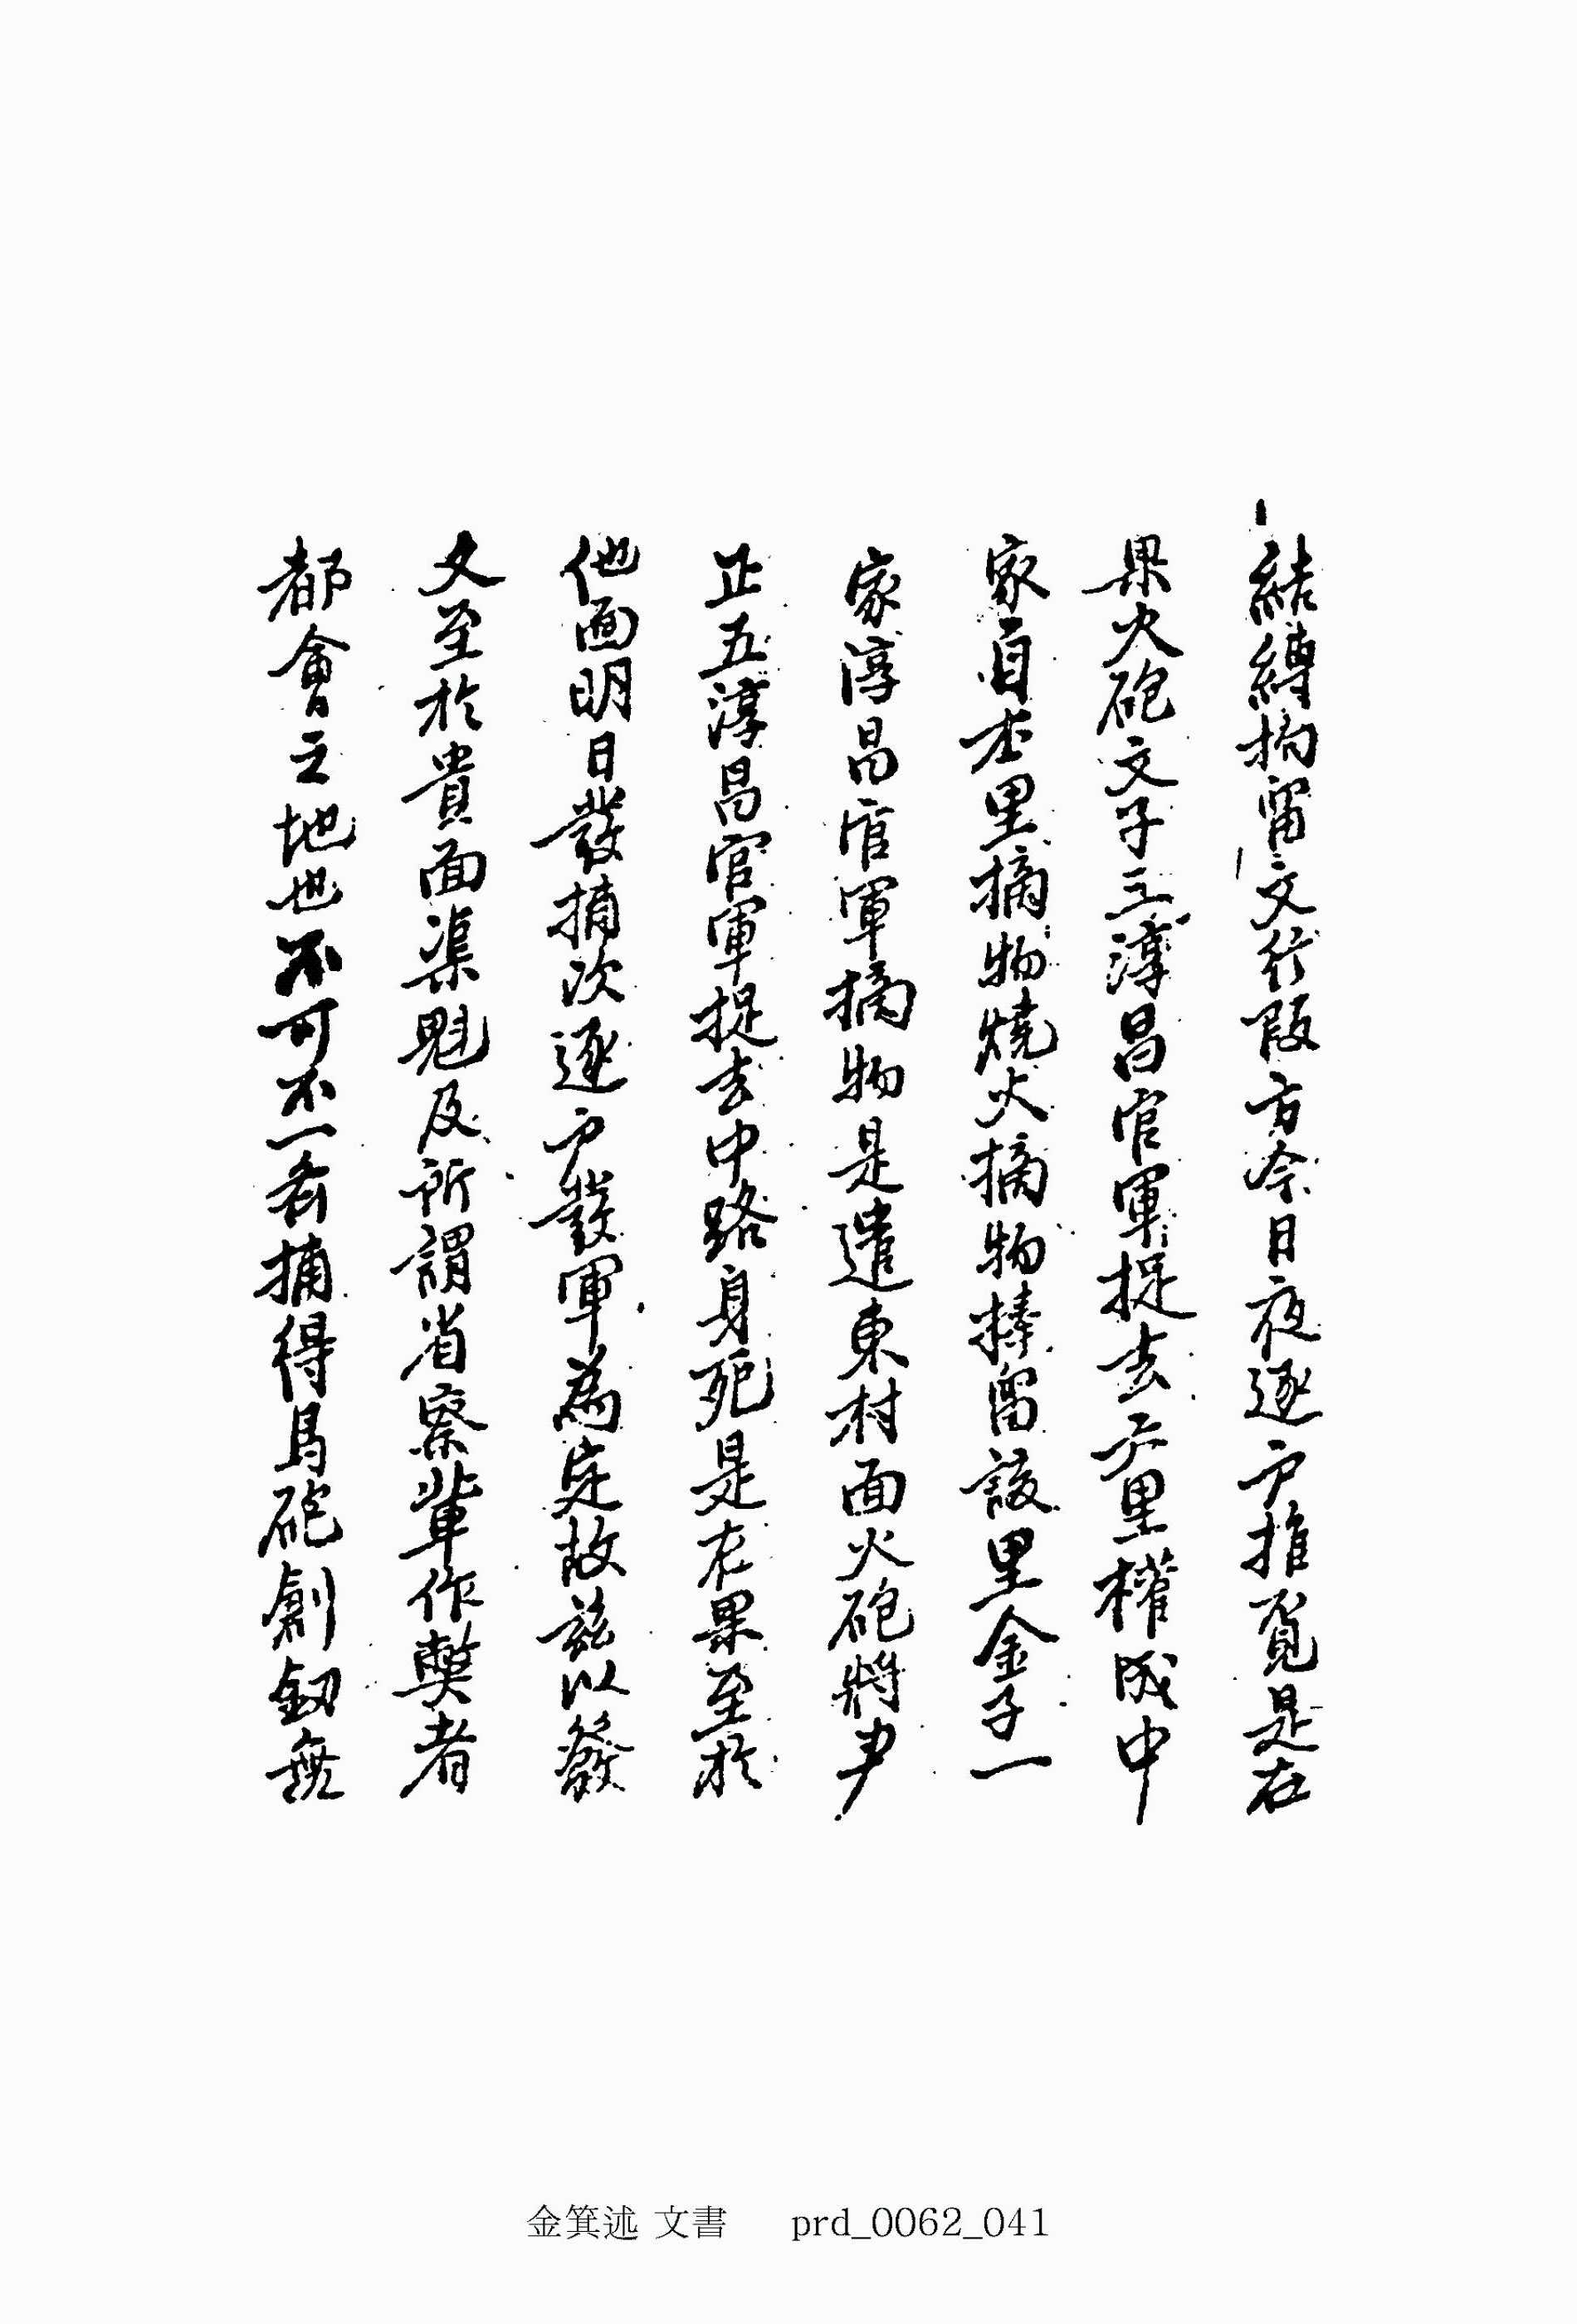 結縛拘留文行 方今日夜逐戶推覓是在
果火砲文子三淳昌官軍捉去 里權成中
家自本里摘物燒火摘物捧留該里金子一
家淳昌官軍摘物是遣東村面火砲將尹
正五淳昌官軍捉去中路身死是在果至於
他面明日發捕次逐戶發軍爲定故玆以發
文至於貴面渠魁及所謂省察輩作弊者
都會之地也不可不一者捕得馬砲創釼無
金箕述 文書 prd_0062_041